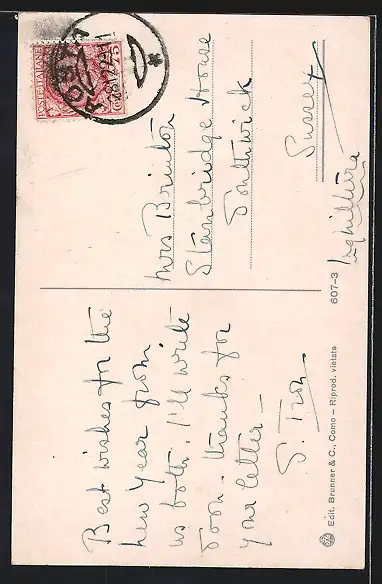 Best wishes for the
New Year from
us both. I'll write
soon. thanks for
your letter —
Mrs Brinton
Stanbridge House
Southwick
Sussex
Inghilterra
POSTE ITALIANE
607-3
Edit. Brunner & C., Como — Riprod. vietata